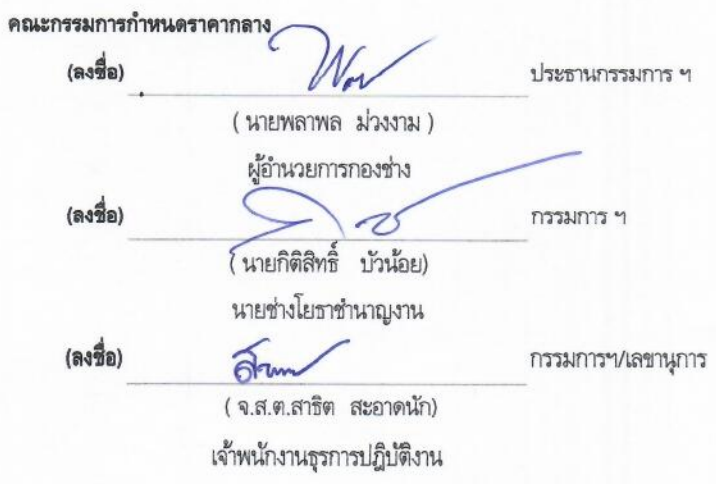 คณะกรรมการกำหนดราคากลาง
(ลงชื่อ) ประธานกรรมการ ฯ
( นายพลาพล ม่วงงาม )
ผู้อำนวยการกองช่าง
(ลงชื่อ) กรรมการ ฯ
( นายกิติสิทธิ์ บัวน้อย)
นายช่างโยธาชำนาญงาน
(ลงชื่อ) กรรมการฯ/เลขานุการ
( จ.ส.ต.สาธิต สะอาดนัก)
เจ้าพนักงานธุรการปฏิบัติงาน